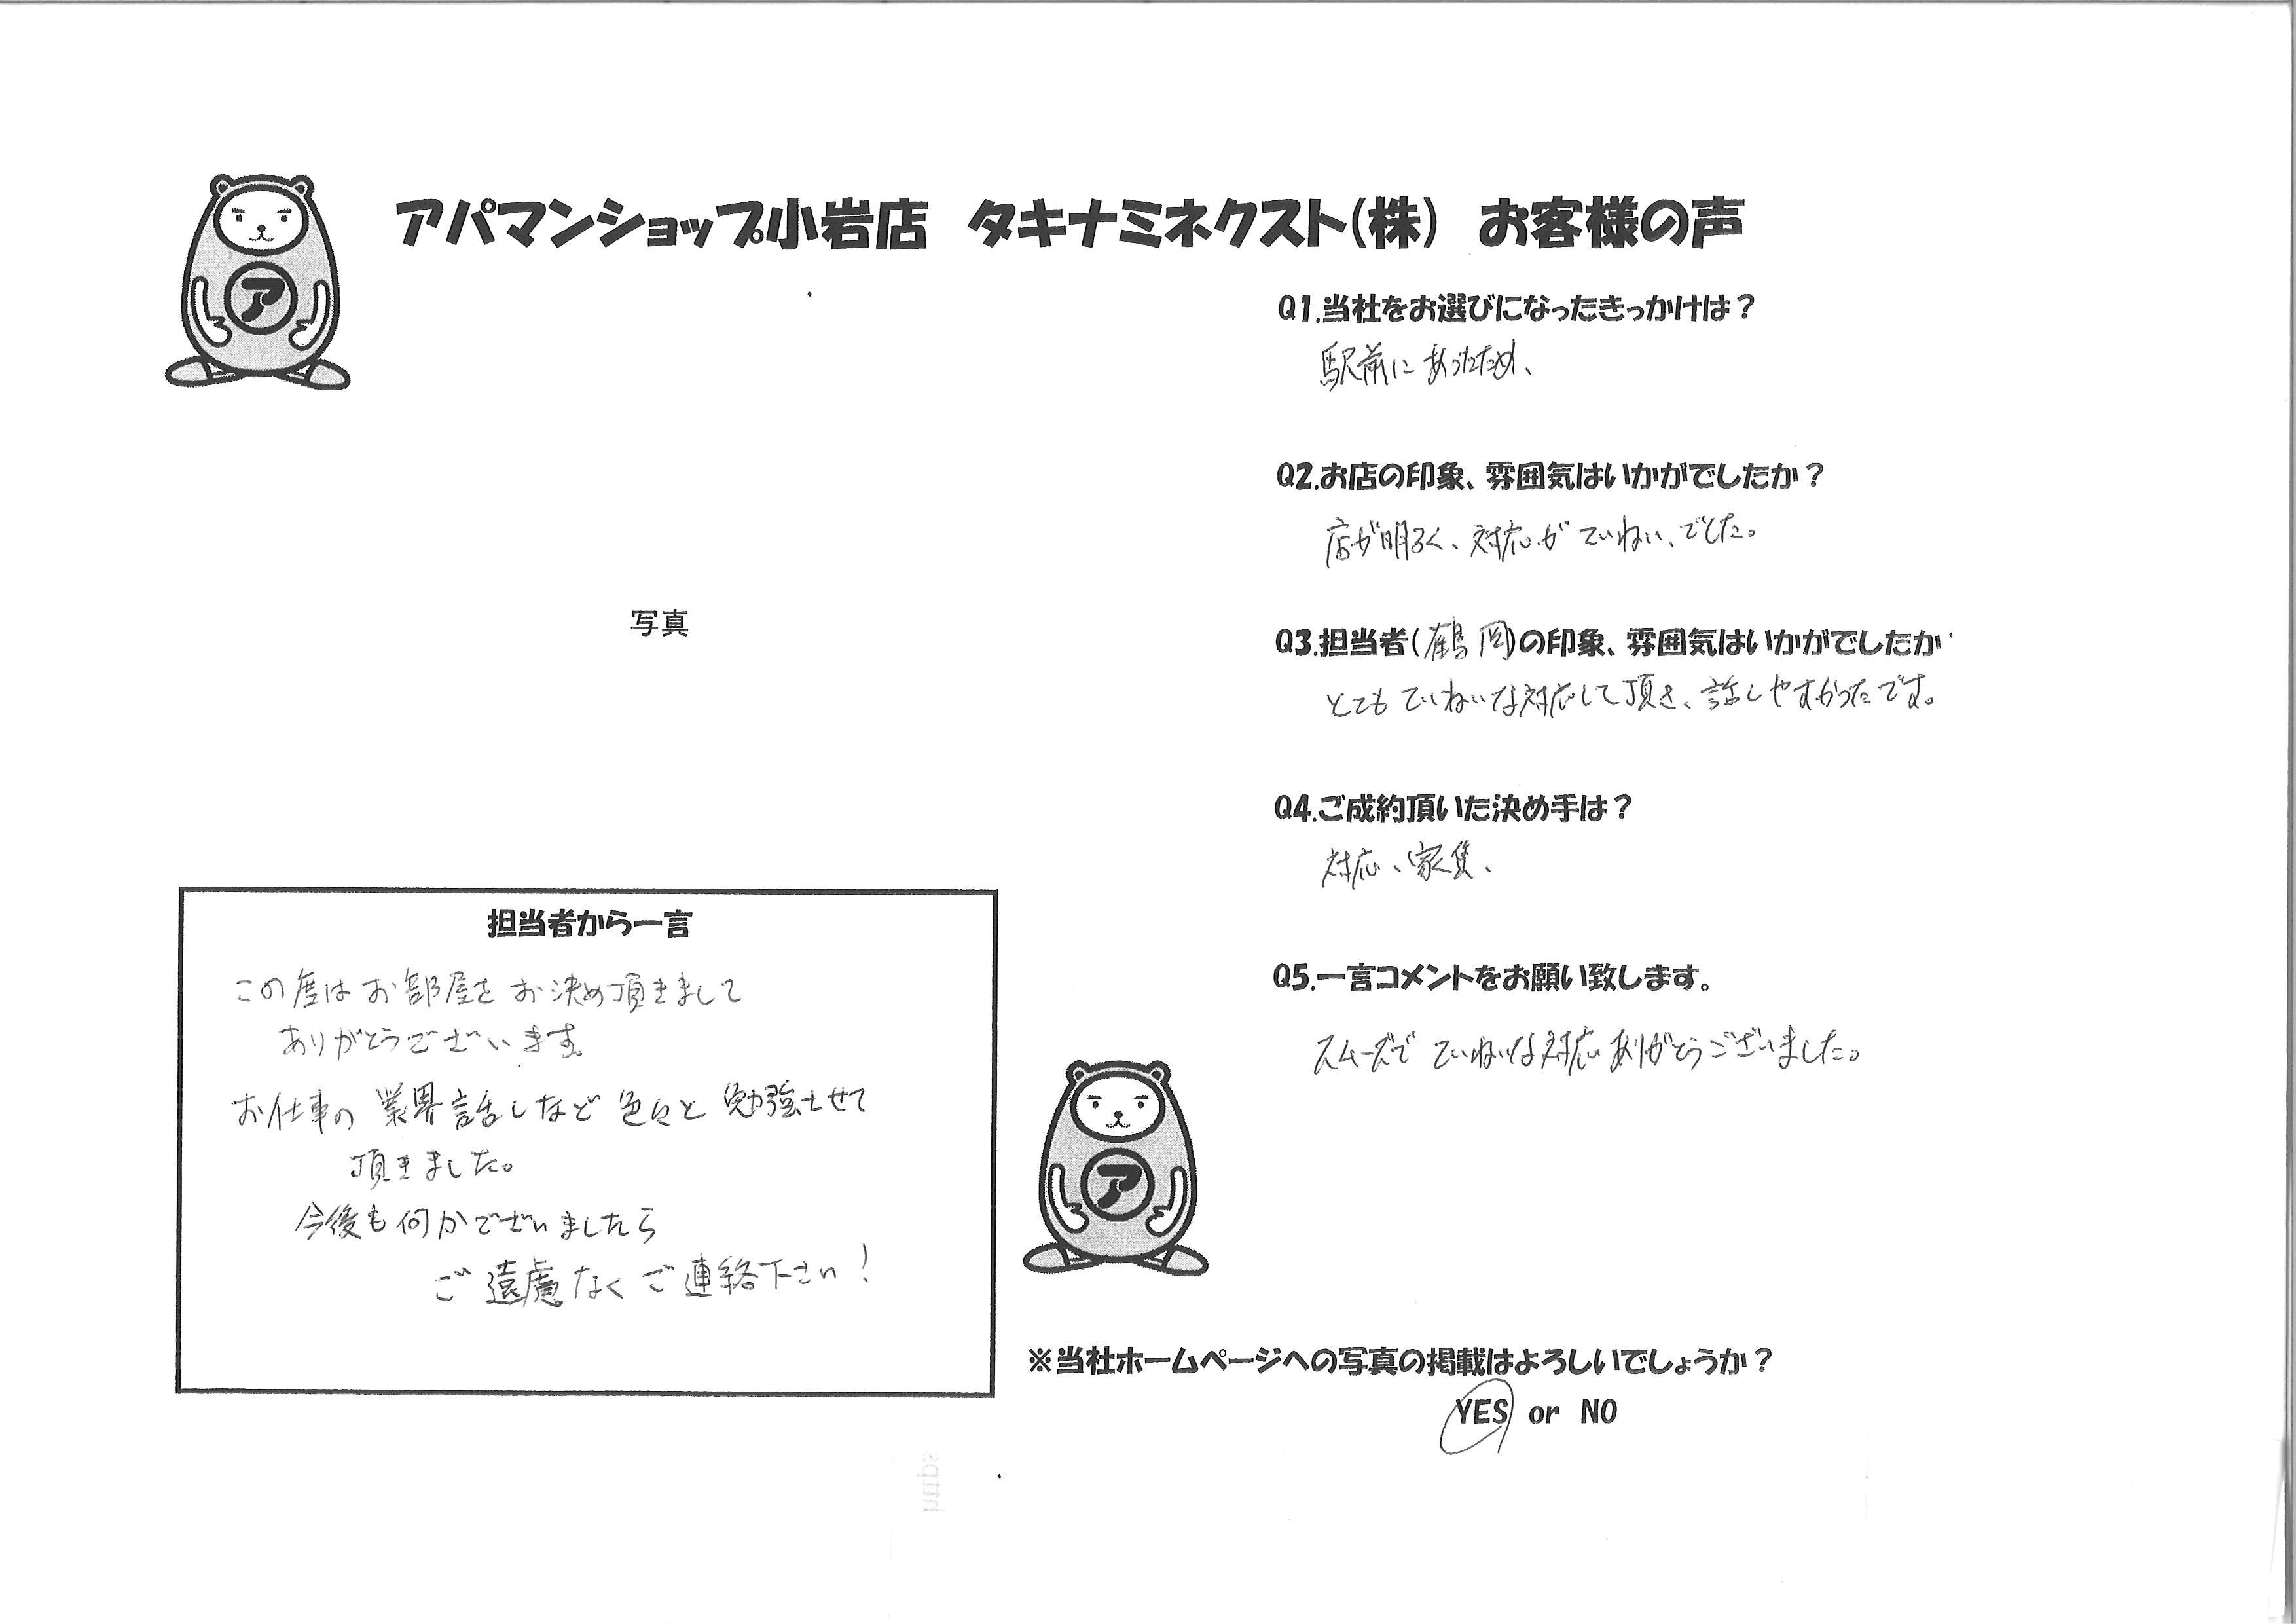 アパマンショップ小岩店 タキナミネクスト(株) お客様の声
ア
Q1.当社をお選びになったきっかけは?
駅前にあったため、
Q2.お店の印象、雰囲気はいかがでしたか?
店が明るく、対応がていねい、でした。
写真
Q3.担当者(鶴岡)の印象、雰囲気はいかがでしたか
とてもていねいな対応して頂き、話しやすかったです。
Q4.ご成約頂いた決め手は?
対応、家賃、
担当者から一言
この度はお部屋をお決め頂きまして
ありがとうございます。
お仕事の業界話しなど色々と勉強させて
頂きました。
今後も何かございましたら
ご遠慮なくご連絡下さい!
Q5.一言コメントをお願い致します。
スムーズでていねいな対応ありがとうございました。
ア
※当社ホームページへの写真の掲載はよろしいでしょうか?
YES or NO